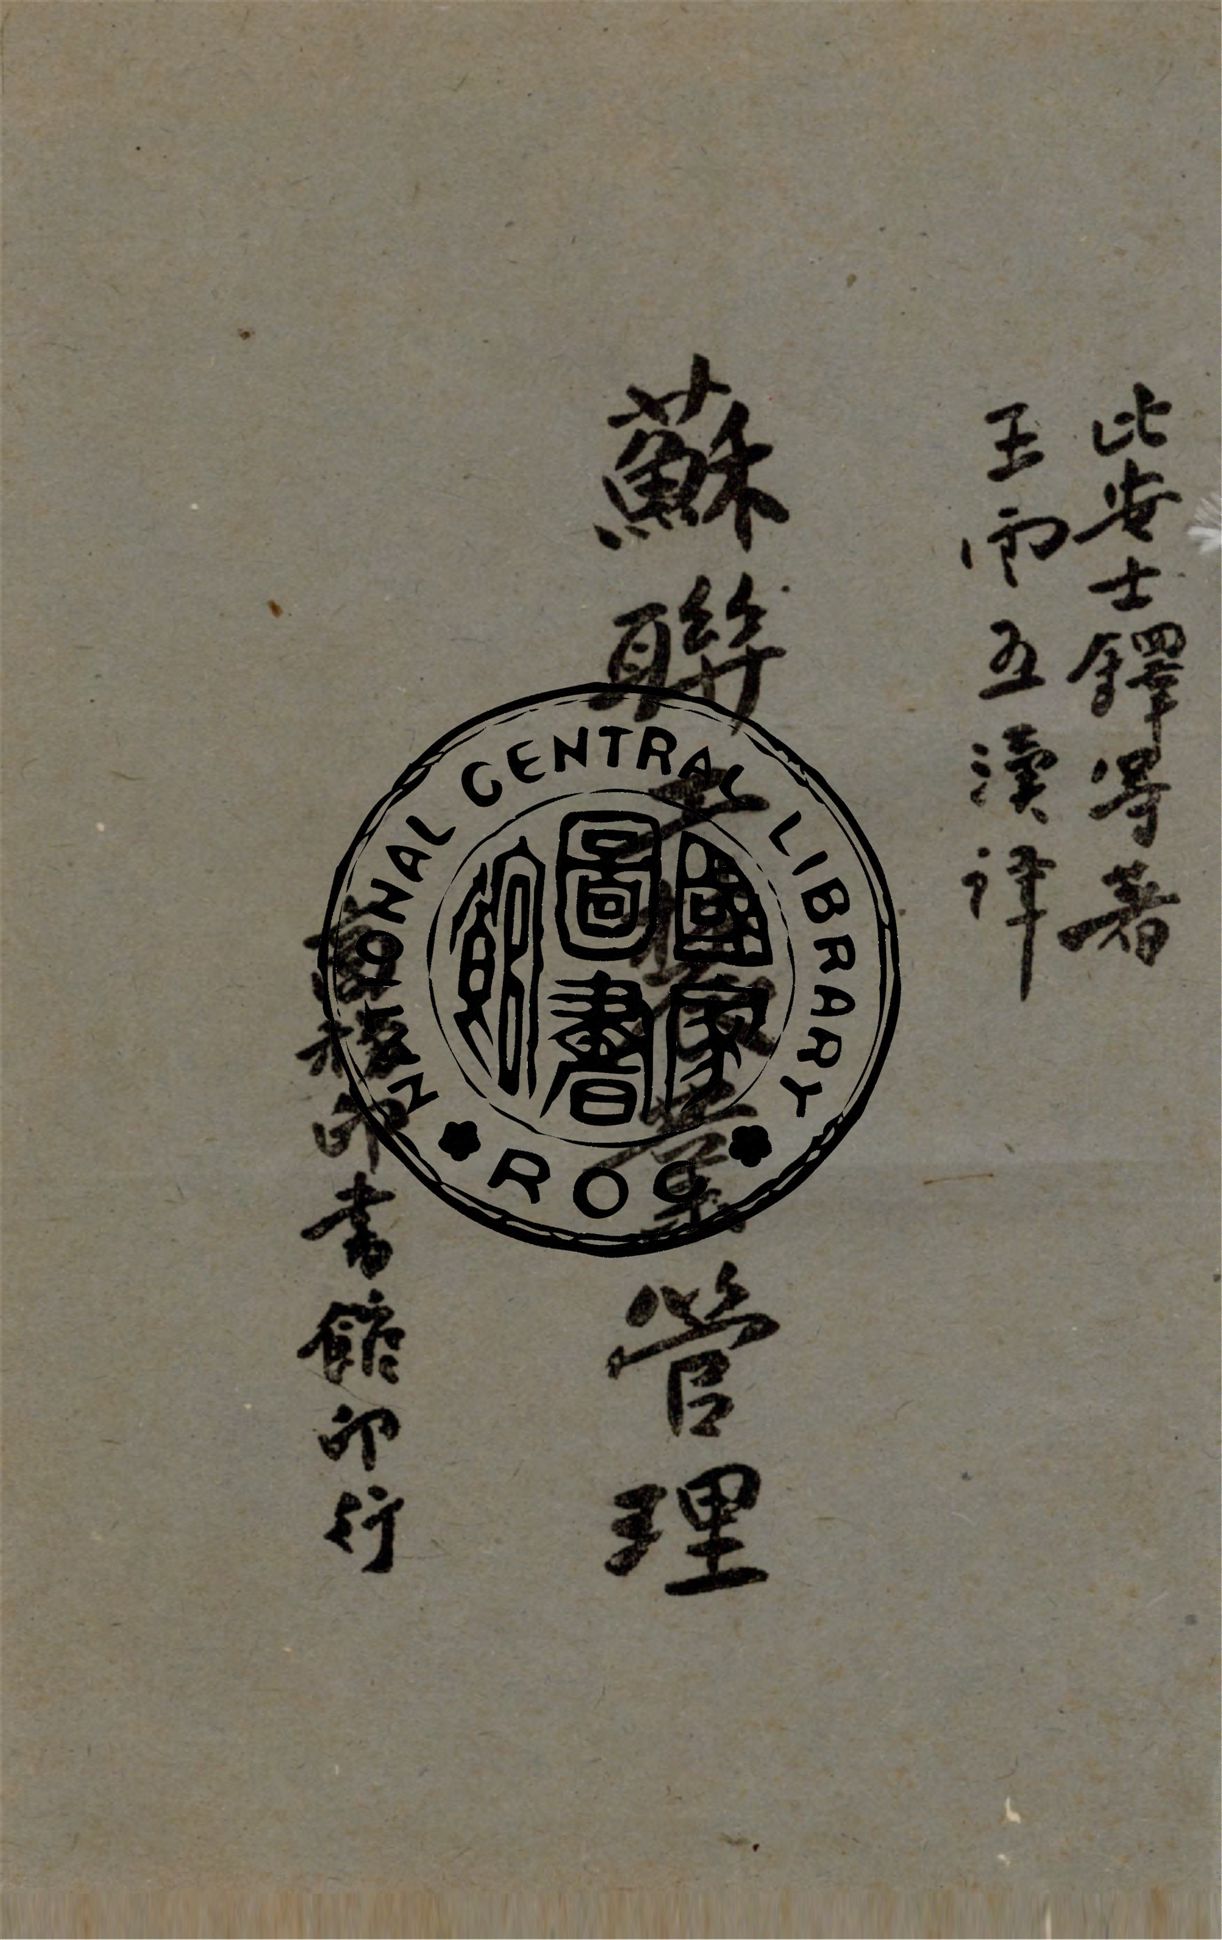 比安士鐸等著
王雲五瀆译
蘇聯工農業管理
印書館印行
NATIONAL CENTRAL LIBRARY
國家圖書館
ROC